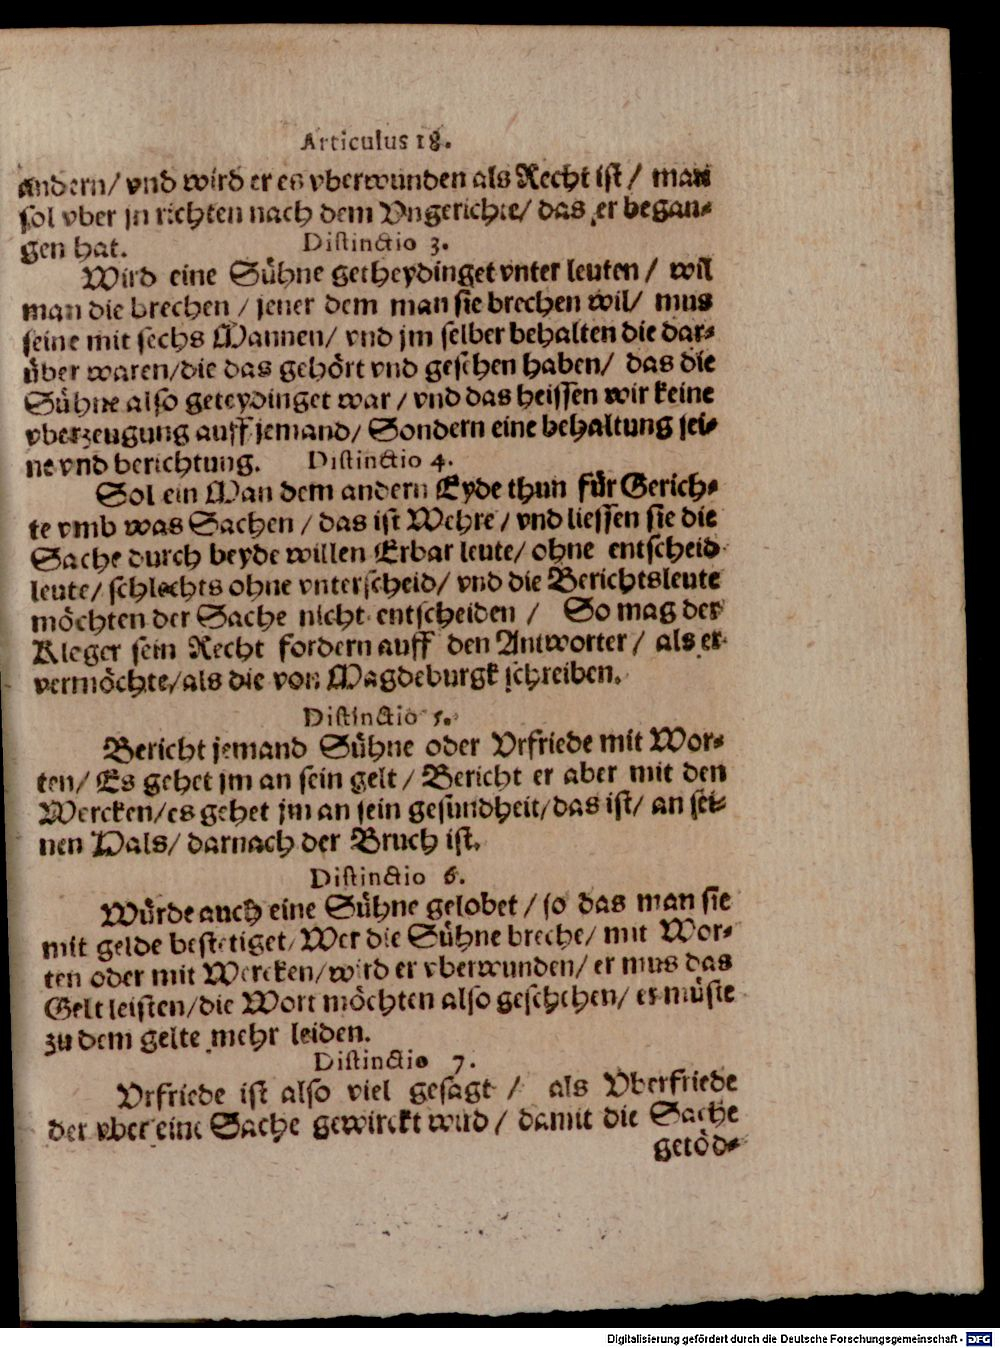 Articulus 18.
andern/ vnd wird er es vberwunden als Recht ist/ man
sol vber jn richten nach dem Vngerichte/ das er began⸗
gen hat.
Distinctio 3.
Wird eine Sühne getheydinget vnter leuten / wil
man die brechen / jener dem man sie brechen wil/ mus
seine mit sechs Mannen/ vnd jm selber behalten die dar⸗
über waren/die das gehört vnd gesehen haben/ das die
Sühne also geteydinget war / vnd das heissen wir keine
vberzeugung auff jemand/ Sondern eine behaltung sei⸗
ne vnd berichtung.
Distinctio 4.
Sol ein Man dem andern Eyde thun für Gerich⸗
te vmb was Sachen / das ist Wehre / vnd liessen sie die
Sache durch beyde willen Erbar leute/ ohne entscheid⸗
leute/ schlechts ohne vnterscheid/ vnd die Berichtsleute
möchten der Sache nicht entscheiden / So mag der
Kleger sein Recht fordern auff den Antworter/ als er
vermöchte/als die von Magdeburgk schreiben.
Distinctio 5.
Bericht jemand Sühne oder Vrfriede mit Wor⸗
ten/ Es gehet jm an sein gelt / Bericht er aber mit den
Wercken/es gehet jm an sein gesundheit/das ist/ an sei⸗
nen Hals/ darnach der Bruch ist.
Distinctio 6.
Würde auch eine Sühne gelobet / so das man sie
mit gelde bestetiget/ Wer die Sühne breche/ mit Wor⸗
ten oder mit Wercken/wird er vberwunden/ er mus das
Gelt leisten/die Wort möchten also geschehen/ er müste
zu dem gelte mehr leiden.
Distinctio 7.
Vrfriede ist also viel gesagt / als Vberfriede
der vber eine Sache gewirckt wird / damit die Sache
getöd⸗
Digitalisierung gefördert durch die Deutsche Forschungsgemeinschaft - DFG